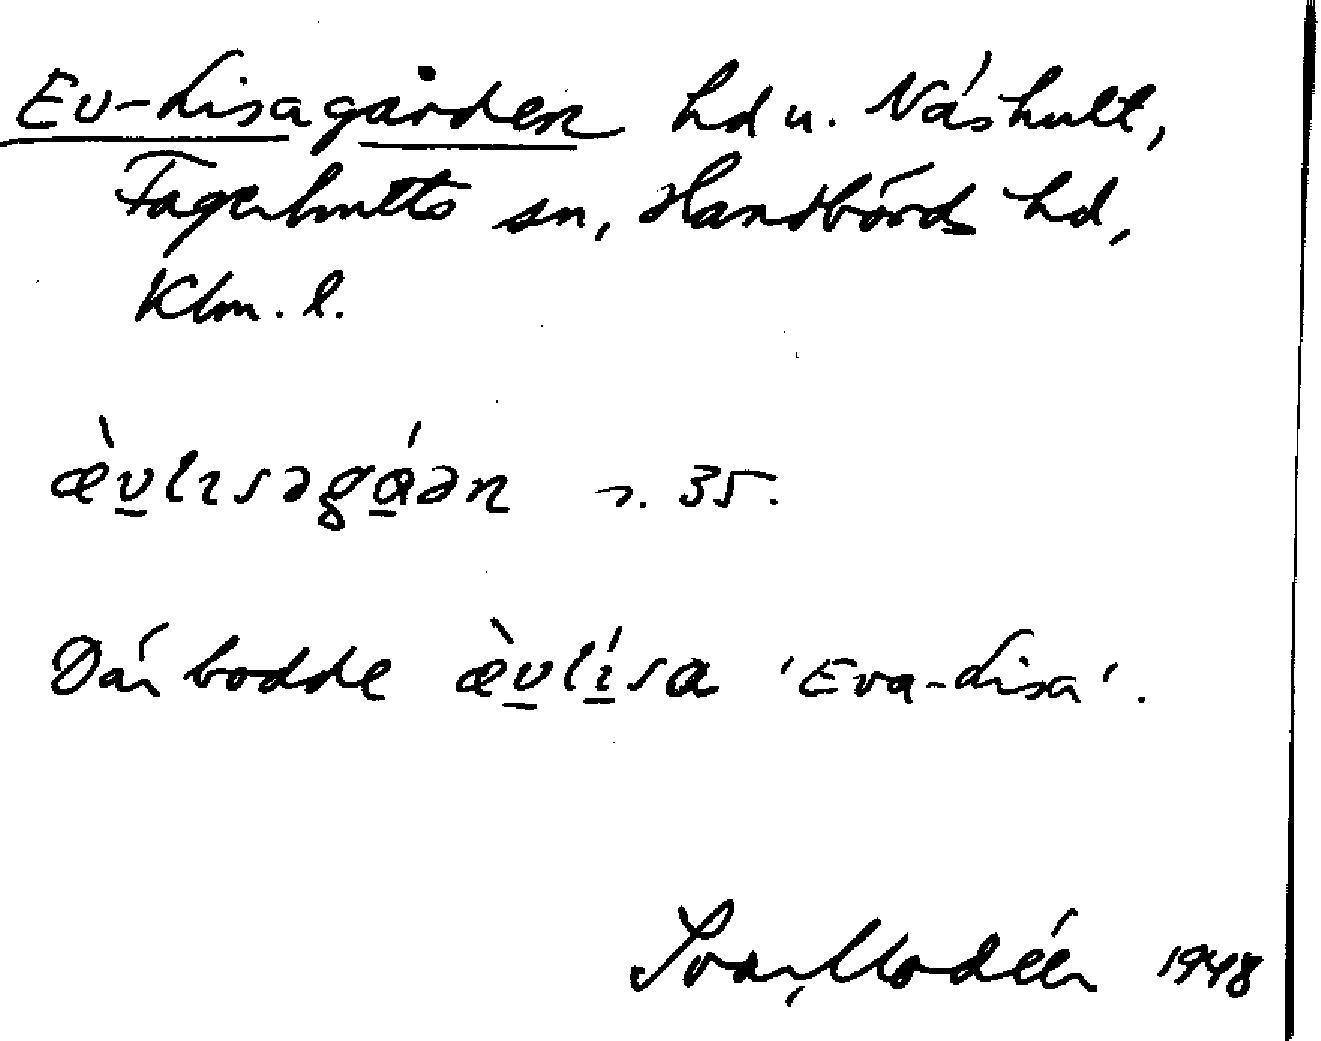 Ev-Lisagården hd u. Näshult,
Fagerhults sn, Handbörds hd,
Klm. l.
æ̀v̲lɩsəgá̲ən 35.
Där bodde æ̀v̲lɩ̲́sa 'Eva-Lisa'.
Ivar Modéer 1948